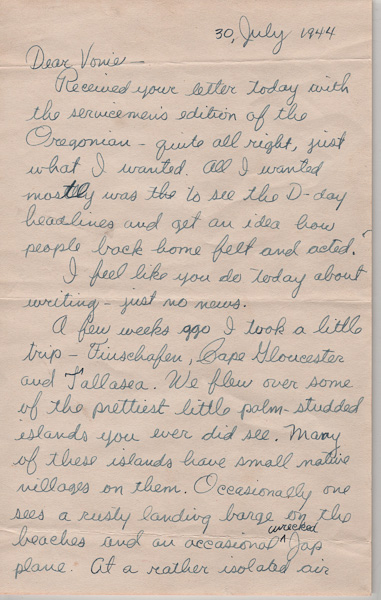 30, July 1944
Dear Vonie —
Received your letter today with
the servicemen's edition of the
Oregonian - quite all right, just
what I wanted. All I wanted
mostly was the to see the D-day
headlines and get an idea how
people back home felt and acted.
I feel like you do today about
writing - just no news.
A few weeks ago I took a little
trip - Finschafen, Cape Gloucester
and Tallasea. We flew over some
of the prettiest little palm-studded
islands you ever did see. Many
of these islands have small native
villages on them. Occasionally one
sees a rusty landing barge on the
beaches and an occasional ^wrecked Jap
plane. At a rather isolated air